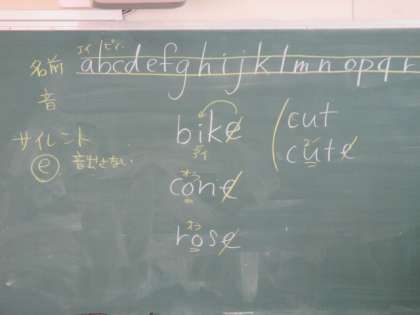 エイ ビイ
名前 abcdefghijklmnopqr
音
サイレント
e 音出さない
bike
アイ
cone
オウ
rose
オウ
cut
cute